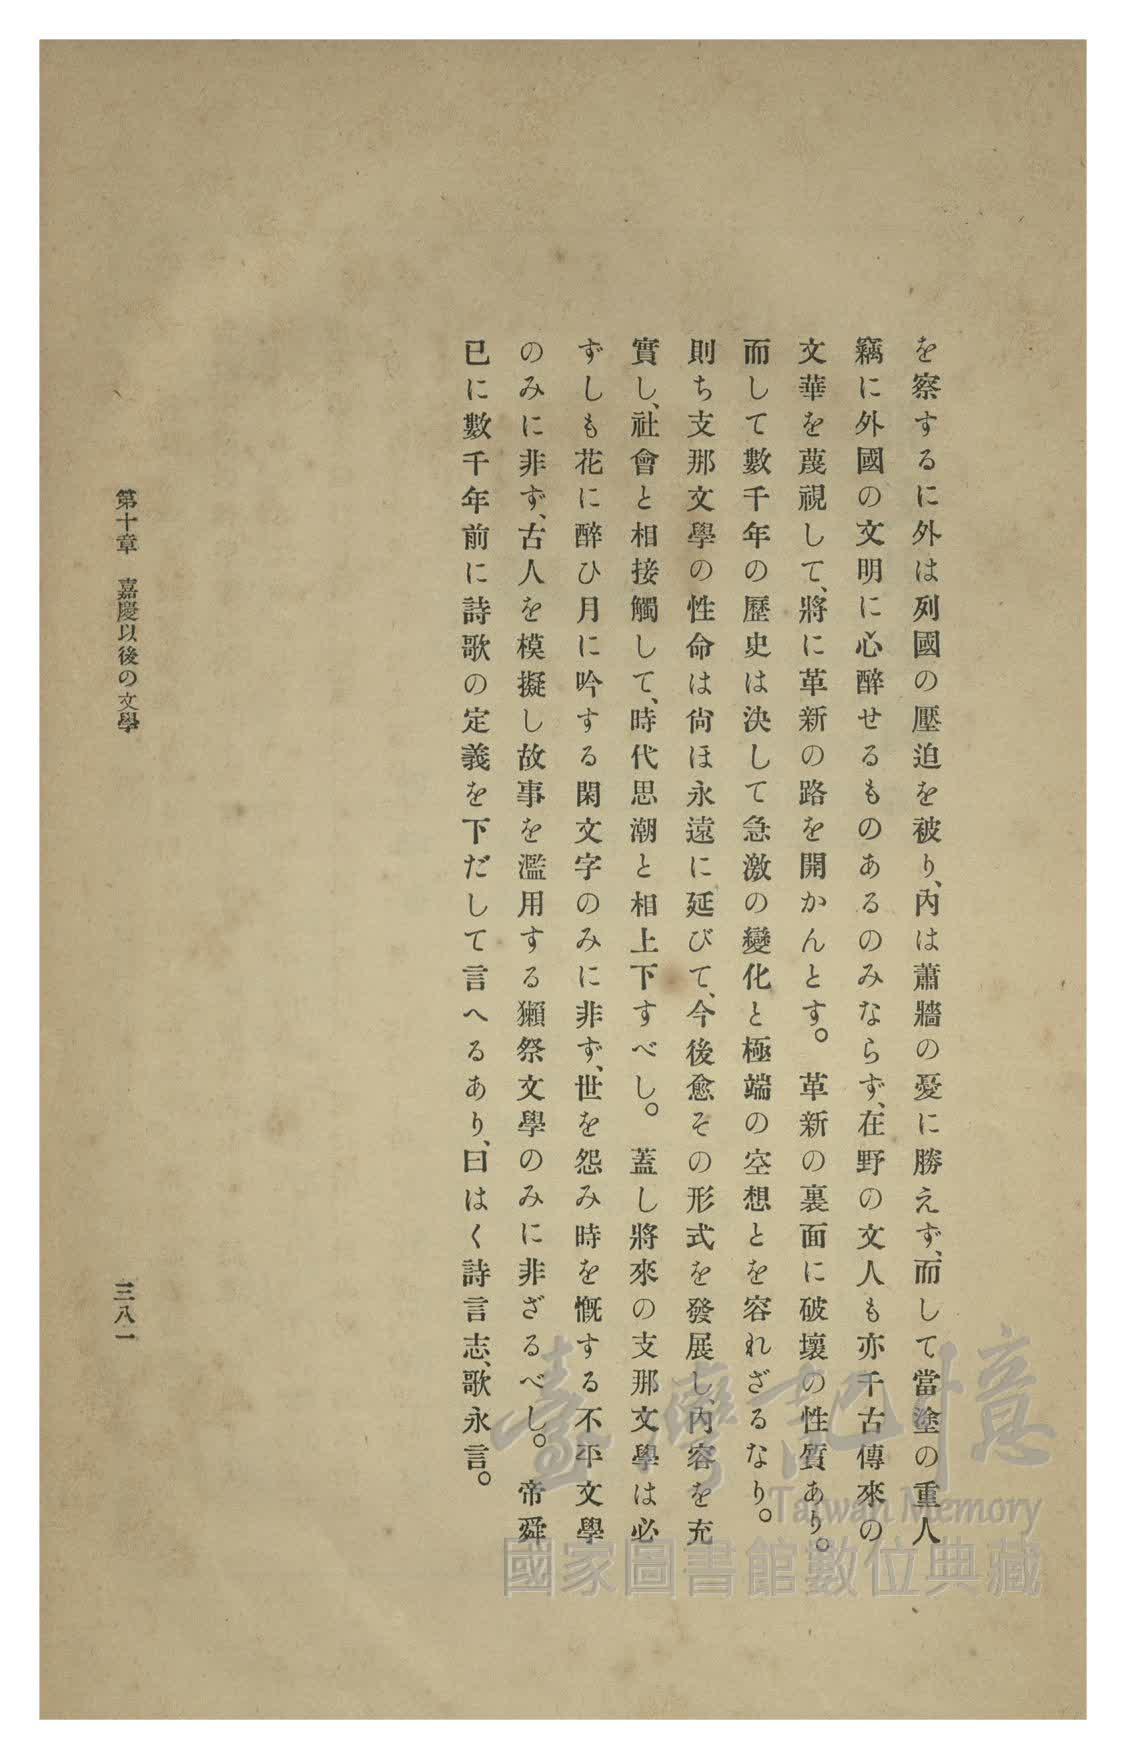 を察するに外は列國の壓迫を被り、內は蕭牆の憂に勝えず、而して當塗の重人
竊に外國の文明に心醉せるものあるのみならず、在野の文人も亦千古傳來の
文華を蔑視して、將に革新の路を開かんとす。革新の裏面に破壞の性質あり。
而して數千年の歷史は決して急激の變化と極端の空想とを容れざるなり。
則ち支那文學の性命は尙ほ永遠に延びて、今後愈その形式を發展し、內容を充
實し、社會と相接觸して、時代思潮と相上下すべし。蓋し將來の支那文學は必
ずしも花に醉ひ月に吟する閑文字のみに非ず、世を怨み時を慨する不平文學
のみに非ず、古人を模擬し故事を濫用する獺祭文學のみに非ざるべし。帝舜
已に數千年前に詩歌の定義を下だして言へるあり、曰はく詩言志、歌永言。
第十章　嘉慶以後の文學
三八一
臺灣記憶
Taiwan Memory
國家圖書館數位典藏